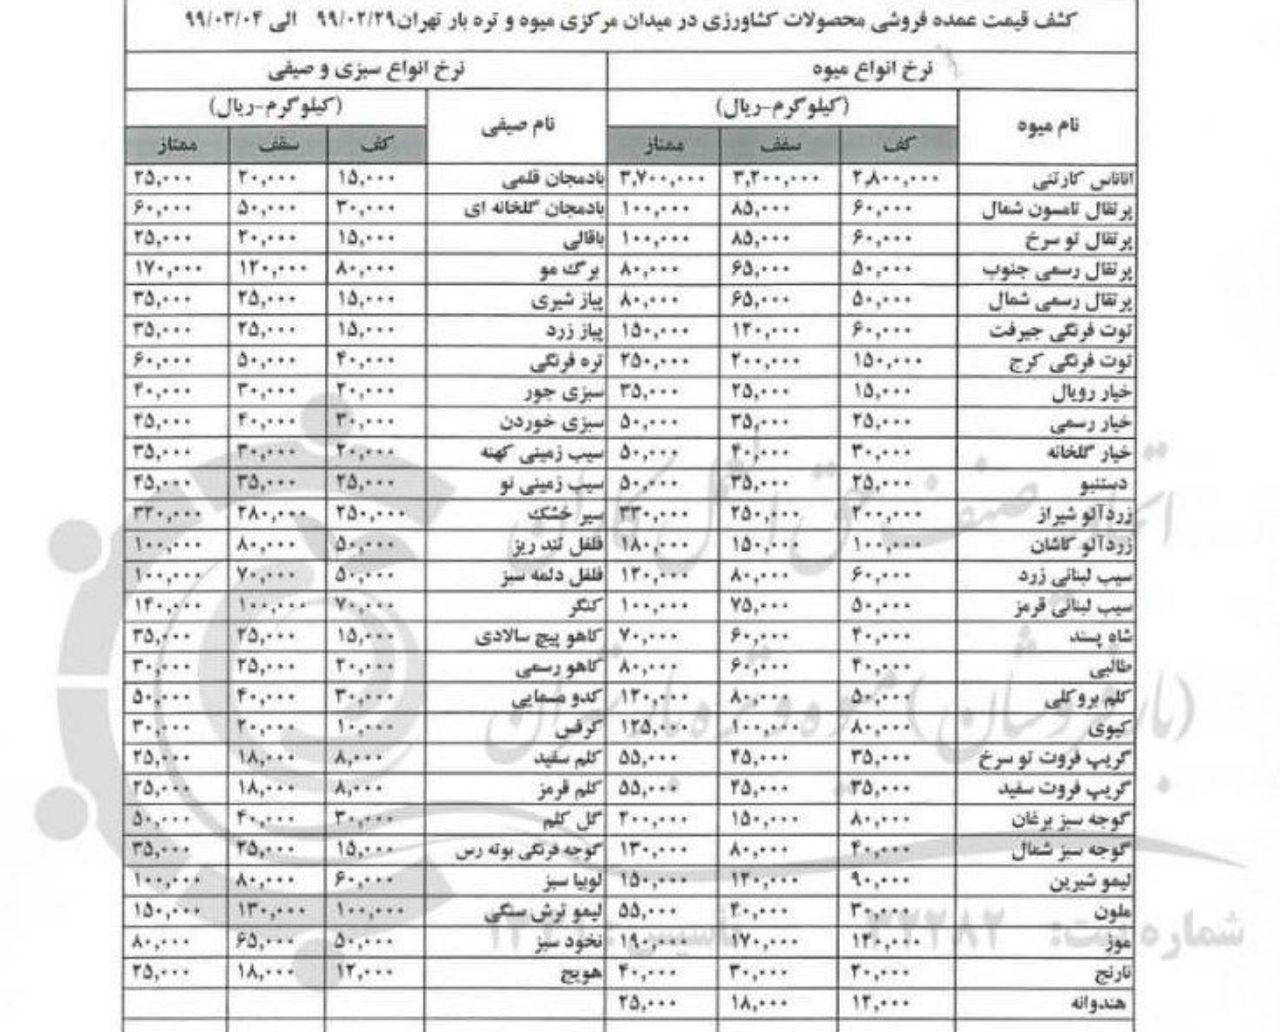 کشف قیمت عمده فروشی محصولات کشاورزی در میدان مرکزی میوه و تره بار تهران۹۹/۰۲/۲۹ الی ۹۹/۰۳/۰۴
نرخ انواع میوه نرخ انواع سبزی و صیفی
نام میوه (کیلوگرم-ریال) نام صیفی (کیلوگرم-ریال)
کف سقف ممتاز کف سقف ممتاز
اناناس کارتنی ۲,۸۰۰,۰۰۰ ۳,۲۰۰,۰۰۰ ۳,۷۰۰,۰۰۰ بادمجان قلمی ۱۵,۰۰۰ ۲۰,۰۰۰ ۲۵,۰۰۰
پرتقال تامسون شمال ۶۰,۰۰۰ ۸۵,۰۰۰ ۱۰۰,۰۰۰ بادمجان گلخانه ای ۳۰,۰۰۰ ۵۰,۰۰۰ ۶۰,۰۰۰
پرتقال تو سرخ ۶۰,۰۰۰ ۸۵,۰۰۰ ۱۰۰,۰۰۰ باقالی ۱۵,۰۰۰ ۲۰,۰۰۰ ۲۵,۰۰۰
پرتقال رسمی جنوب ۵۰,۰۰۰ ۶۵,۰۰۰ ۸۰,۰۰۰ برگ مو ۸۰,۰۰۰ ۱۲۰,۰۰۰ ۱۷۰,۰۰۰
پرتقال رسمی شمال ۵۰,۰۰۰ ۶۵,۰۰۰ ۸۰,۰۰۰ پیاز شیری ۱۵,۰۰۰ ۲۵,۰۰۰ ۳۵,۰۰۰
توت فرنگی جیرفت ۶۰,۰۰۰ ۱۲۰,۰۰۰ ۱۵۰,۰۰۰ پیاز زرد ۱۵,۰۰۰ ۲۵,۰۰۰ ۳۵,۰۰۰
توت فرنگی کرج ۱۵۰,۰۰۰ ۲۰۰,۰۰۰ ۲۵۰,۰۰۰ تره فرنگی ۴۰,۰۰۰ ۵۰,۰۰۰ ۶۰,۰۰۰
خیار رویال ۱۵,۰۰۰ ۲۵,۰۰۰ ۳۵,۰۰۰ سبزی جور ۲۰,۰۰۰ ۳۰,۰۰۰ ۴۰,۰۰۰
خیار رسمی ۲۵,۰۰۰ ۳۵,۰۰۰ ۵۰,۰۰۰ سبزی خوردن ۳۰,۰۰۰ ۴۰,۰۰۰ ۴۵,۰۰۰
خیار گلخانه ۳۰,۰۰۰ ۴۰,۰۰۰ ۵۰,۰۰۰ سیب زمینی کهنه ۲۰,۰۰۰ ۳۰,۰۰۰ ۳۵,۰۰۰
دستنبو ۲۵,۰۰۰ ۳۵,۰۰۰ ۵۰,۰۰۰ سیب زمینی نو ۲۵,۰۰۰ ۳۵,۰۰۰ ۴۵,۰۰۰
زردآلو شیراز ۲۰۰,۰۰۰ ۲۵۰,۰۰۰ ۳۳۰,۰۰۰ سیر خشک ۲۵۰,۰۰۰ ۲۸۰,۰۰۰ ۳۲۰,۰۰۰
زردآلو کاشان ۱۰۰,۰۰۰ ۱۵۰,۰۰۰ ۱۸۰,۰۰۰ فلفل تند ریز ۵۰,۰۰۰ ۸۰,۰۰۰ ۱۰۰,۰۰۰
سیب لبنانی زرد ۶۰,۰۰۰ ۸۰,۰۰۰ ۱۳۰,۰۰۰ فلفل دلمه سبز ۵۰,۰۰۰ ۷۰,۰۰۰ ۱۰۰,۰۰۰
سیب لبنانی قرمز ۵۰,۰۰۰ ۷۵,۰۰۰ ۱۰۰,۰۰۰ کنگر ۷۰,۰۰۰ ۱۰۰,۰۰۰ ۱۴۰,۰۰۰
شاه پسند ۴۰,۰۰۰ ۶۰,۰۰۰ ۷۰,۰۰۰ کاهو پیچ سالادی ۱۵,۰۰۰ ۲۵,۰۰۰ ۳۵,۰۰۰
طالبی ۴۰,۰۰۰ ۶۰,۰۰۰ ۸۰,۰۰۰ کاهو رسمی ۲۰,۰۰۰ ۲۵,۰۰۰ ۳۰,۰۰۰
کلم بروکلی ۵۰,۰۰۰ ۸۰,۰۰۰ ۱۲۰,۰۰۰ کدو مسمایی ۳۰,۰۰۰ ۴۰,۰۰۰ ۵۰,۰۰۰
کیوی ۸۰,۰۰۰ ۱۰۰,۰۰۰ ۱۲۵,۰۰۰ کرفس ۱۰,۰۰۰ ۲۰,۰۰۰ ۳۰,۰۰۰
گریپ فروت تو سرخ ۳۵,۰۰۰ ۴۵,۰۰۰ ۵۵,۰۰۰ کلم سفید ۸,۰۰۰ ۱۸,۰۰۰ ۲۵,۰۰۰
گریپ فروت سفید ۳۵,۰۰۰ ۴۵,۰۰۰ ۵۵,۰۰۰ کلم قرمز ۸,۰۰۰ ۱۸,۰۰۰ ۲۵,۰۰۰
گوجه سبز برغان ۸۰,۰۰۰ ۱۵۰,۰۰۰ ۲۰۰,۰۰۰ گل کلم ۳۰,۰۰۰ ۴۰,۰۰۰ ۵۰,۰۰۰
گوجه سبز شمال ۴۰,۰۰۰ ۸۰,۰۰۰ ۱۳۰,۰۰۰ گوجه فرنگی بوته رس ۱۵,۰۰۰ ۲۵,۰۰۰ ۳۵,۰۰۰
لیمو شیرین ۹۰,۰۰۰ ۱۲۰,۰۰۰ ۱۵۰,۰۰۰ لوبیا سبز ۶۰,۰۰۰ ۸۰,۰۰۰ ۱۰۰,۰۰۰
ملون ۳۰,۰۰۰ ۴۰,۰۰۰ ۵۵,۰۰۰ لیمو ترش سنگی ۱۰۰,۰۰۰ ۱۳۰,۰۰۰ ۱۵۰,۰۰۰
موز ۱۴۰,۰۰۰ ۱۷۰,۰۰۰ ۱۹۰,۰۰۰ نخود سبز ۵۰,۰۰۰ ۶۵,۰۰۰ ۸۰,۰۰۰
نارنج ۲۰,۰۰۰ ۳۰,۰۰۰ ۴۰,۰۰۰ هویج ۱۲,۰۰۰ ۱۸,۰۰۰ ۲۵,۰۰۰
هندوانه ۱۲,۰۰۰ ۱۸,۰۰۰ ۲۵,۰۰۰
شماره ثبت: ۳۲۲۸۲